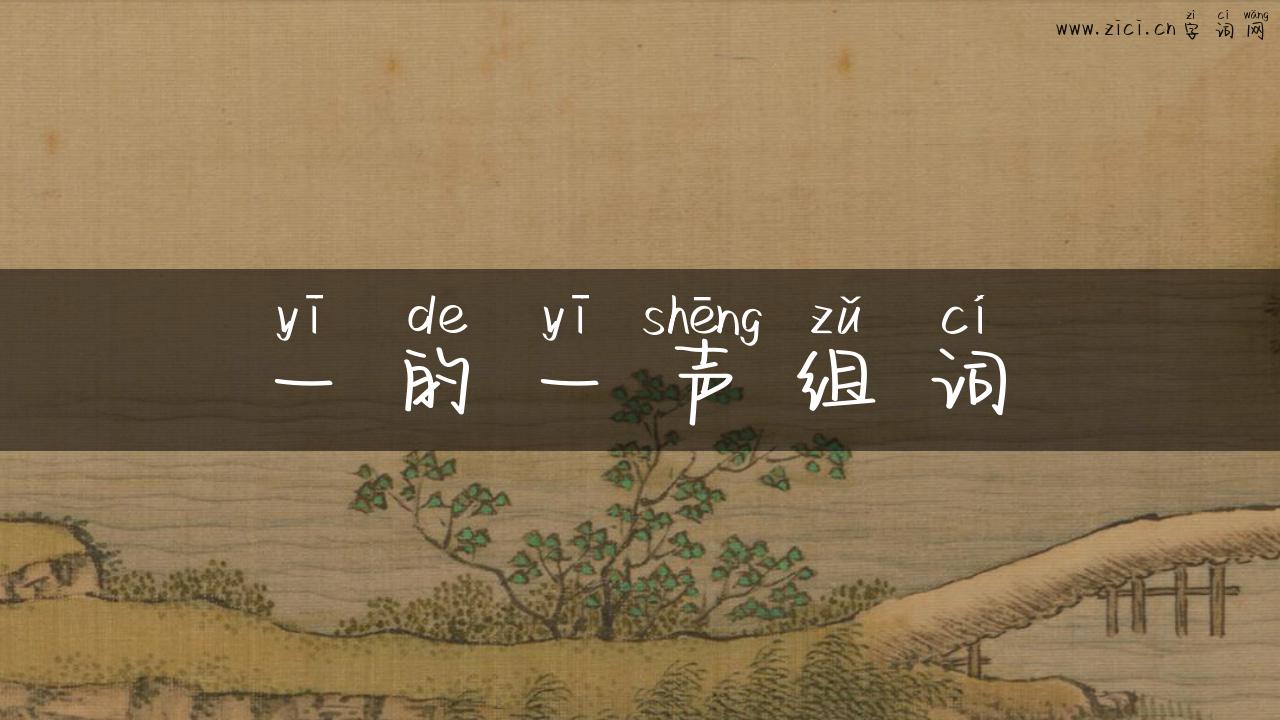 zì cí wǎng
www.zici.cn 字词网
yī de yī shēng zǔ cí
一的一声组词